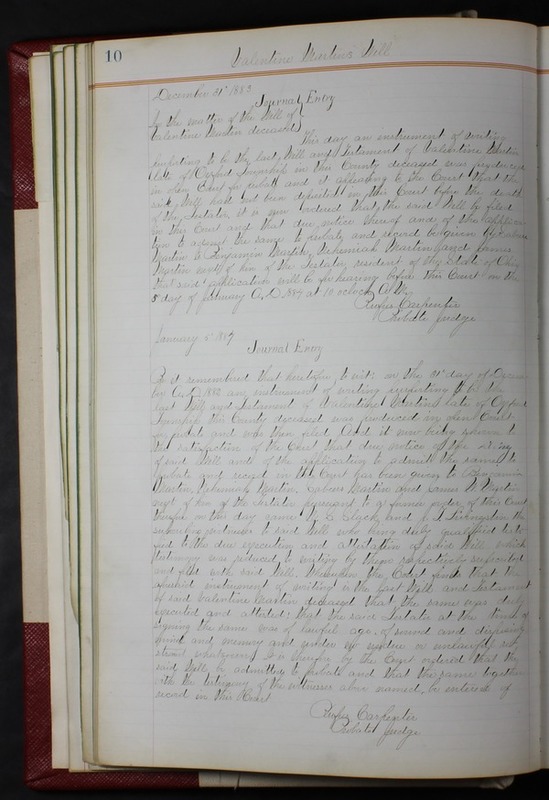 10
Valentine Martins Will
December 31st 1883
Journal Entry
In the matter of the Will of
Valentine Martin deceased
This day an instrument of writing
purporting to be the last Will and Testament of Valentine Martin
late of Township in this County deceased was produced
in open Court for probate and it appearing to the Court that the
said Will had not been deposited in this Court before the death
of the Testator, it is now ordered that the said Will be filed
in this Court and that due notice thereof and of the applica-
tion to admit the same to probate and record be given to
Martin & Benjamin Martin, Nehemiah Martin and James
Martin next of kin of the Testator resident of the State of Ohio
that said application will be for hearing before this Court on the
5 day of January A.D. 1884 at 10 oclock A.M.
Rufus Carpenter
Probate Judge
January 5th 1884
Journal Entry
Be it remembered that heretofore, to wit: on the 31st day of Decem-
ber A.D. an instrument of writing purporting to be the
last Will and testament of Valentine Martin late of
Township this County deceased was produced in open Court
for probate and was then filed. And it now being proven to
the satisfaction of the Court that due notice of the filing
of said Will and of the application to admit the same to
probate and record in this Court has been given to Benjamin
Martin, Nehemiah Martin, Martin and James Martin
next of kin of the Testator pursuant to a former order of this Court
therefor, on this day came Black and Livingston the
subscribing witnesses to said Will who being duly qualified testi-
fied to the due execution and attestation of said Will which
testimony was reduced to writing by them respectively subscribed
and filed with said Will. Whereupon the Court finds that the
aforesaid instrument of writing is the last Will and Testament
of said Valentine Martin deceased that the same was duly
executed and attested; that the said Testator at the time of
signing the same was of lawful age, of sound and disposing
mind and memory and under no undue or unlawful re-
straint whatsoever. It is therefore by the Court ordered that the
said Will be admitted to probate and that the same together
with the testimony of the witnesses above named, be entered of
record in this Court
Rufus Carpenter
Probate Judge